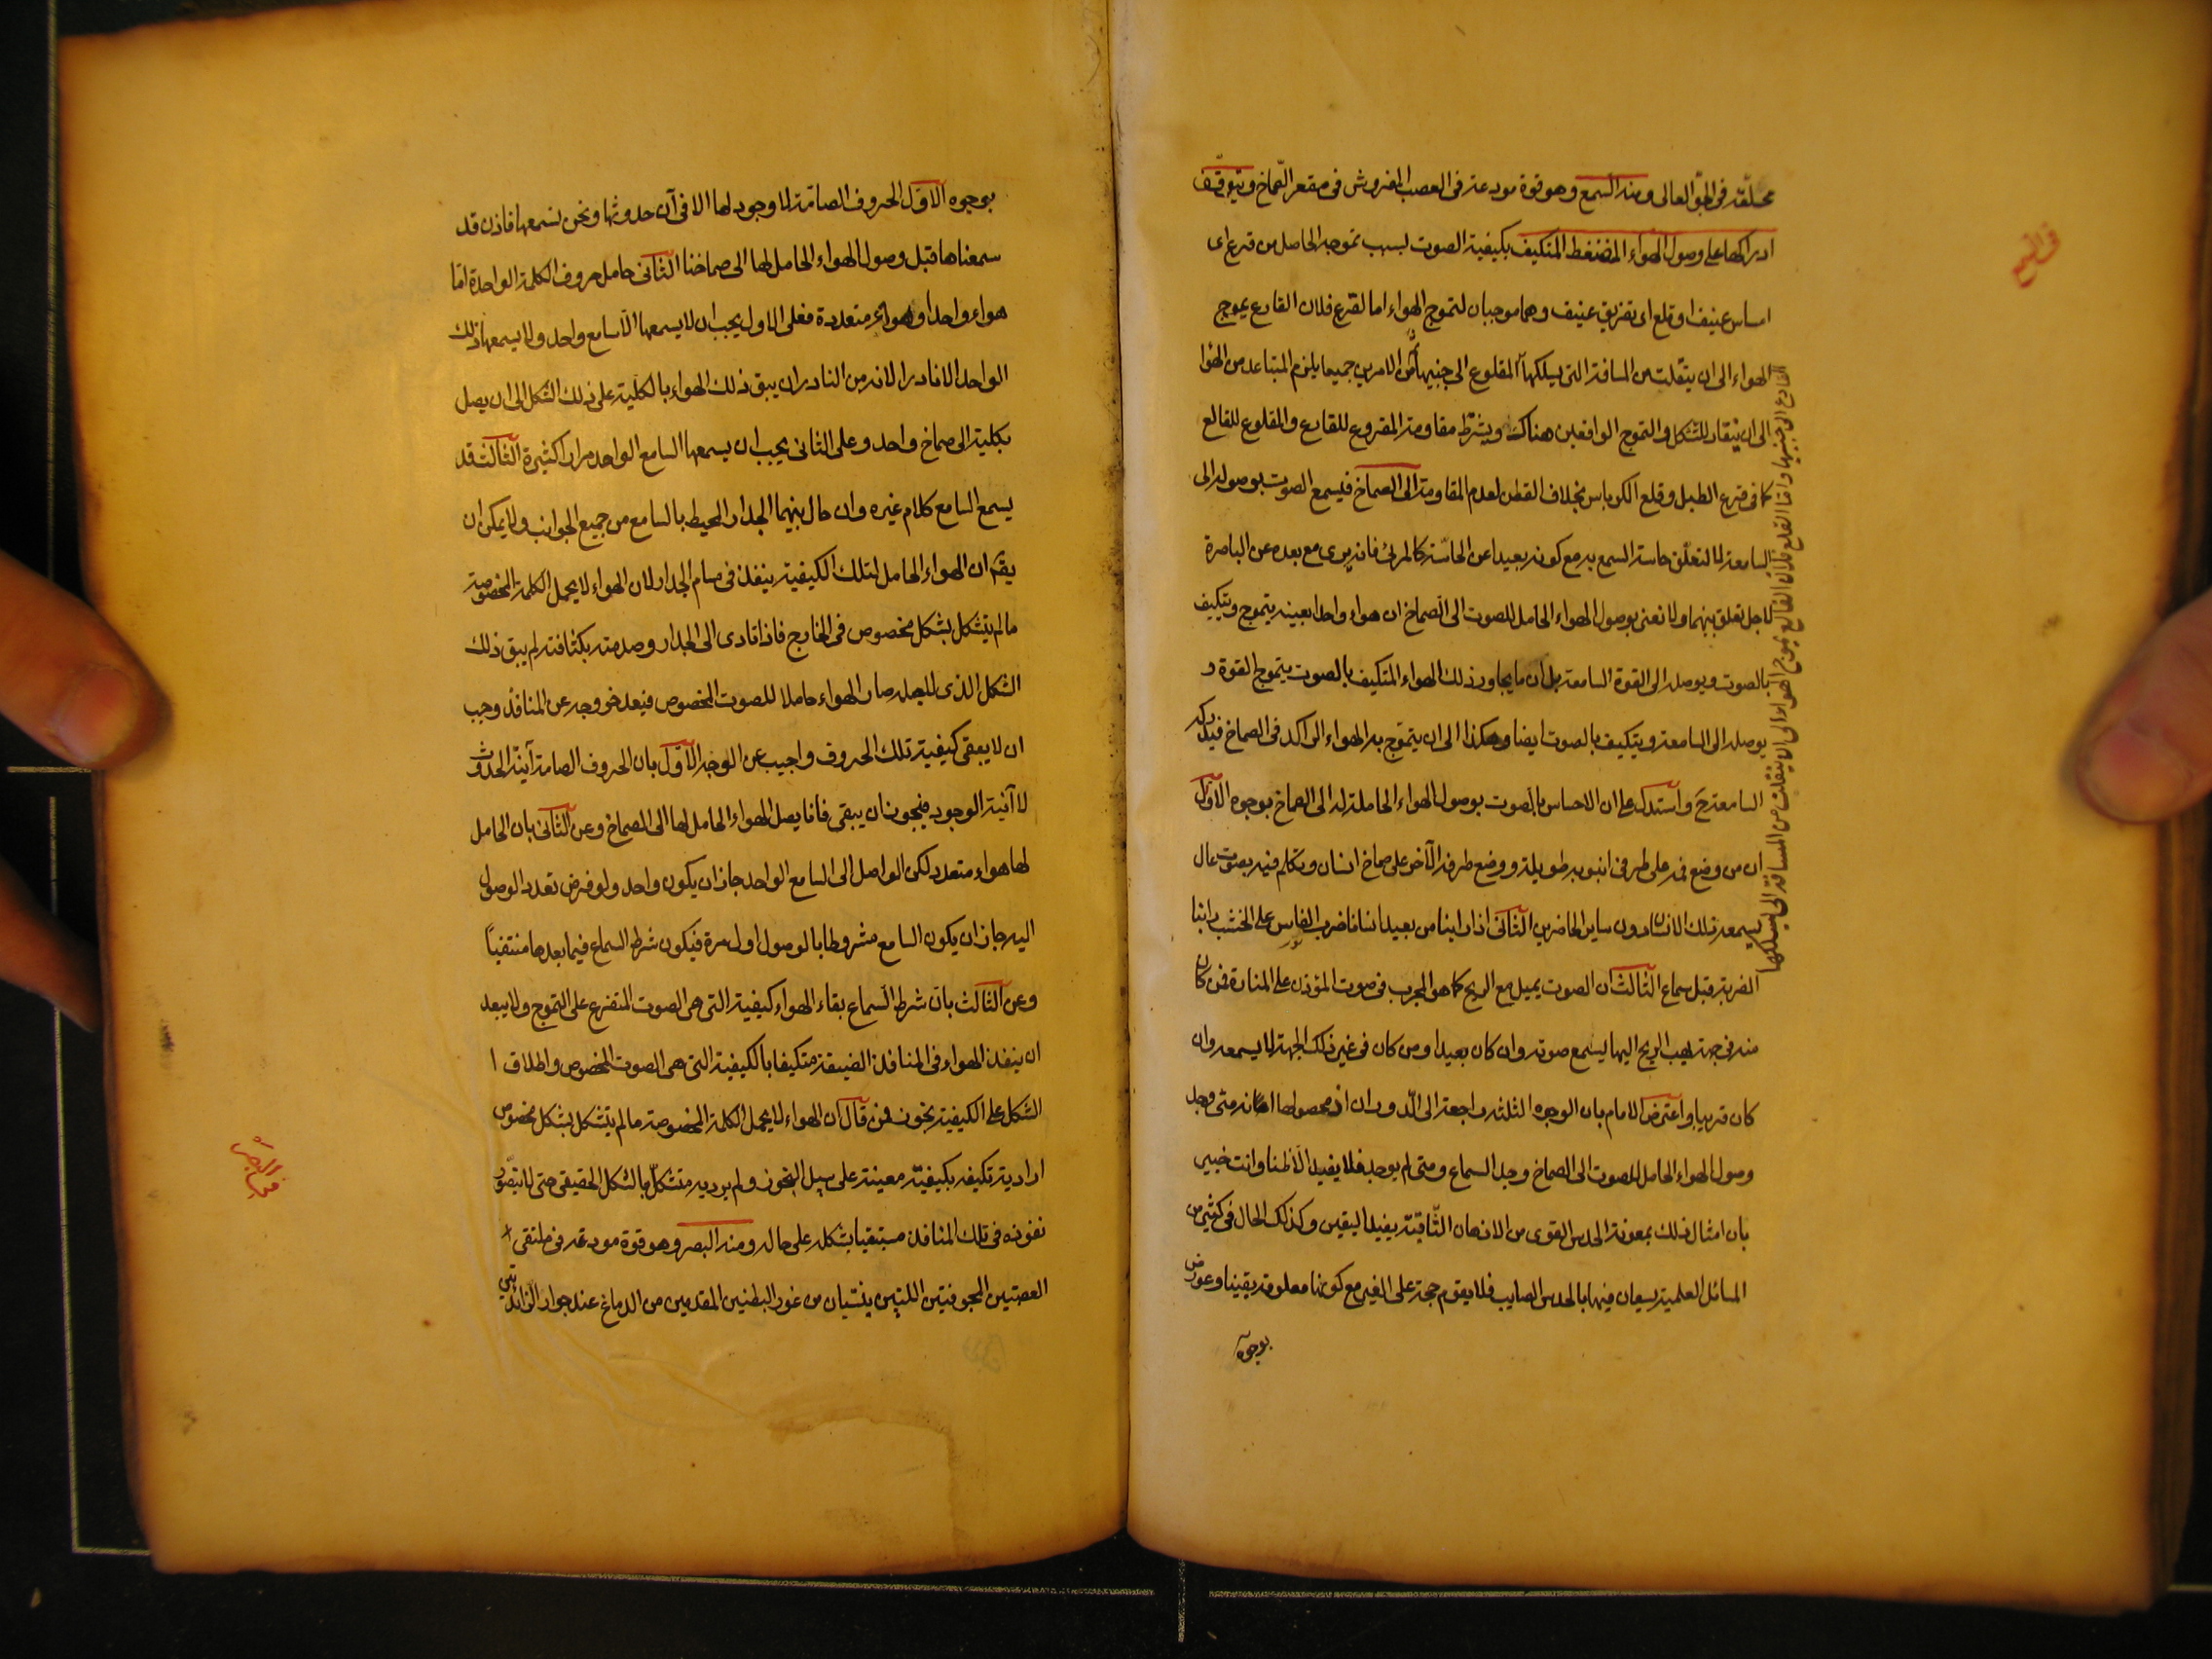 في السمع
محلقة في الجو العالى ومنه السمع وهو قوة مودعة في العصب المفروش في مقعر الصماخ ويتوقف
ادراكها على وصول الهواء المنضغط المتكيف بكيفية الصوت بسبب تموجه الحاصل من قرع اى
امساس عنيف او قلع اى تفريق عنيف وهما موجبان لتموج الهواء اما القرع فلان القارع يموج
الهواء الى ان ينقلت من المسافة التى يسلكها المقلوع الى جنبيها وفى الامرين جميعا يلزم المتباعد من الهوا
الى ان ينقاد للشكل والتموج الواقعين هناك ويشترط مقاومة المقروع للقارع والمقلوع للقالع
كما في قرع الطبل وقلع الكرباس بخلاف القطن لعدم المقاومة الى الصماخ فيسمع الصوت بوصوله الى
السامعة لا لتعلق حاسة السمع به مع كونه بعيدا عن الحاسة كالمرئى فانه يرى مع بعده عن الباصرة
لاجل تعلق بينهما ولا نعنى بوصول الهواء الحامل للصوت الى الصماخ ان هواء واحدا بعينه يتموج ويتكيف
بالصوت ويوصله الى القوة السامعة بل ان ما يجاور ذلك الهواء المتكيف بالصوت يتموج القوة و
يوصله الى السامعة ويتكيف بالصوت ايضا وهكذا الى ان يتموج به الهواء الراكد في الصماخ فيدركه
السامعة ح واستدل على ان الاحساس بالصوت بوصول الهواء الحاملة له الى الصماخ بوجوه الاول
ان من وضع فمه على طرف انبوبة طويلة ووضع طرفه الآخر على صماخ انسان وتكلم فيه بصوت عال
يسمعه تلك الانسان دون ساير الحاضرين الثانى اذا راينا من بعيد انسانا ضرب الفاس على الخشب راينا
الضربة قبل سماع الثالث ان الصوت يميل مع الريح كما هو المجرب في صوت المؤذن على المنارة فمن كان
منه في جهة يهب الريح اليها يسمع صوته وان كان بعيدا ومن كان في غير ذلك الجهة لا يسمعه وان
كان قريبا واعترض الامام بان الوجوه الثلثة راجعة الى الدوران اذ محصولها انه متى وجد
وصول الهواء الحامل للصوت الى الصماخ وجد السماع ومتى لم يوجد فلا يفيد الا ظنا وانت خبير
بان امثال ذلك بمعونة الحدس القوى من الاذهان الثاقبة يفيد اليقين وكذلك الحال في كثير من
المسائل العلمية يستعان فيها بالحدس الصايب فلا يقوم حجة على الغير مع كونها معلومة يقينا وعورض
بوجوه
القارع الى جنبيها واما القلع فلان القالع يموج الهواء الى ان ينقلت من المسافة التى يسلكها
بوجوه الاول الحروف الصامتة لا وجود لها الا فى آن حدوثها ونحن نسمعها فاذن قد
سمعناها قبل وصول الهواء الحامل لها الى صماخنا الثانى حامل حروف الكلمة الواحدة اما
هواء واحد او اهواء متعددة فعلى الاول يجب ان لا يسمعها الا سامع واحد ولا يسمعها ذلك
الواحد الا نادرا لانه من النادر ان يبق ذلك الهواء بالكلية على ذلك الشكل الى ان يصل
بكليته الى صماخ واحد وعلى الثانى يجب ان يسمعها السامع الواحد مرارا كثيرة الثالث قد
يسمع السامع كلام غيره وان حال بينهما الجدار المحيط بالسامع من جميع الجوانب ولا يمكن ان
يقه ان الهواء الحامل لتلك الكيفية ينفذ في مسام الجدار لان الهواء لا يحمل الكلمة المخصوصة
ما لم يتشكل بشكل مخصوص في الخارج فاذا تادى الى الجدار وصدمته بكثافته لم يبق ذلك
الشكل الذى لاجله صار الهواء حاملا للصوت المخصوص فبعد خروجه عن المنافذ وجب
ان لا يبقى كيفية تلك الحروف واجيب عن الوجه الاول بان الحروف الصامتة آنية الحدوث
لا آنية الوجود فيجوز ان يبقى فانا يصل الهواء الحامل لها الى الصماخ وعن الثانى بان الحامل
لها هواء متعدد لكن الواصل الى السامع الواحد جاز ان يكون واحد ولو فرض تعدد الوصول
اليه جاز ان يكون السامع مشروطا بالوصول اول مرة فيكون شرط السماع فيما بعدها منتفيا
وعن الثالث بان شرط السماع بقاء الهواء كيفية التى هى الصوت المتفرع على التموج ولا يبعد
ان ينفذ الهواء في المنافذ الضيقة متكيفا بالكيفية التى هى الصوت المخصوص واطلاق ا
الشكل على الكيفية تجوز فمن قال ان الهواء لا يحمل الكلمة المخصوصة ما لم يتشكل بشكل مخصوص
اراد به تكيفه بكيفية معينة على سبيل التجوز ولم يرد به متشكل بالشكل الحقيقى حتى لا يتصور
نفوذه في تلك المنافذ مستبقيا بشكله على حاله ومنه البصر وهو قوة مودعة في ملتقى
العصبتين المجوفتين اللتين ينبتان من غور البطنين المقدمين من الدماغ عند جوار الزائدتين
في البصر